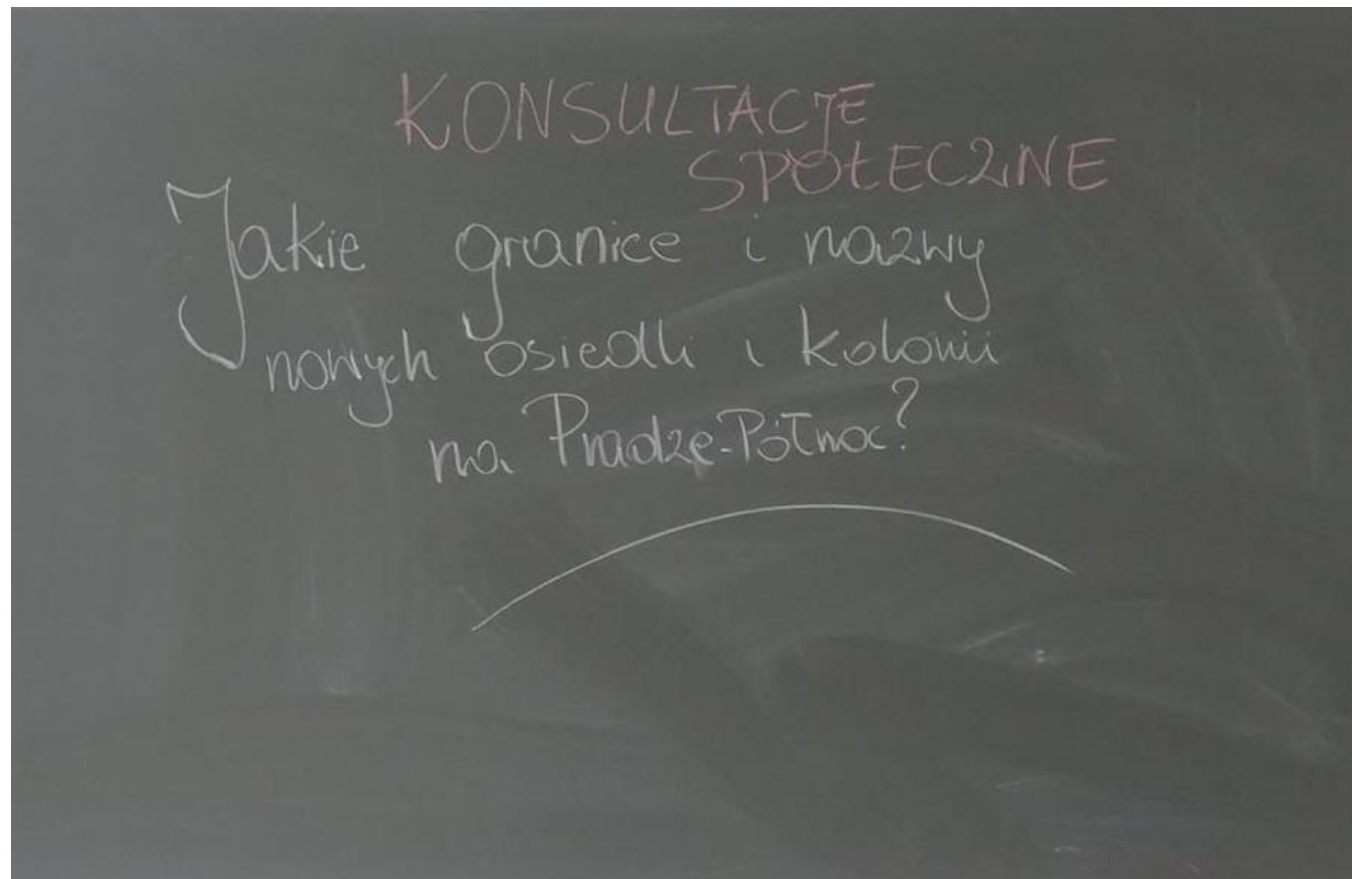 KONSULTACJE
SPOŁECZNE
Jakie granice i nazwy
nowych osiedli i kolonii
na Pradze-Północ?